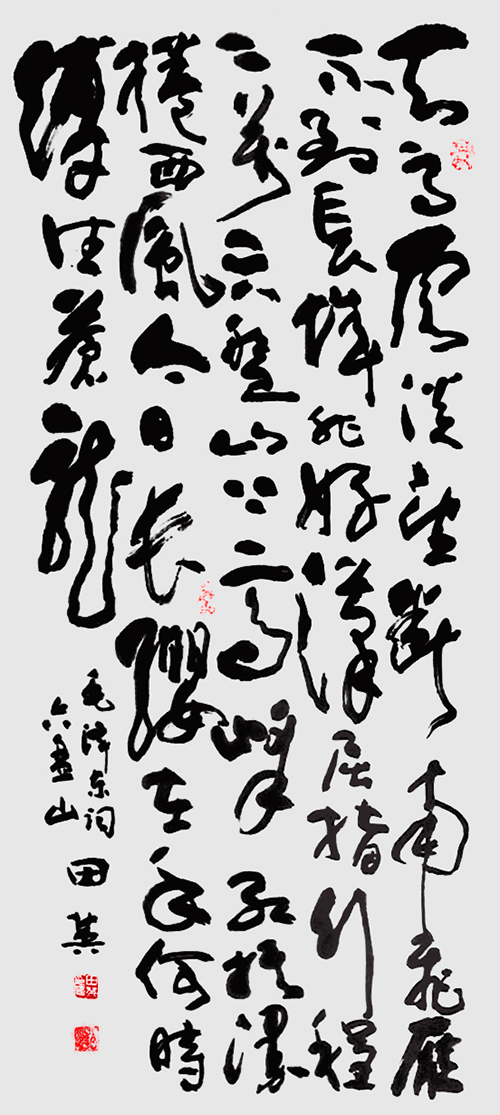 天高雲淡望斷南飛雁
不到長城非好漢屈指行程
二萬六盤山上高峰紅旗漫
捲西風今日長纓在手何時
縛住蒼龍
毛泽东词
六盘山
田英